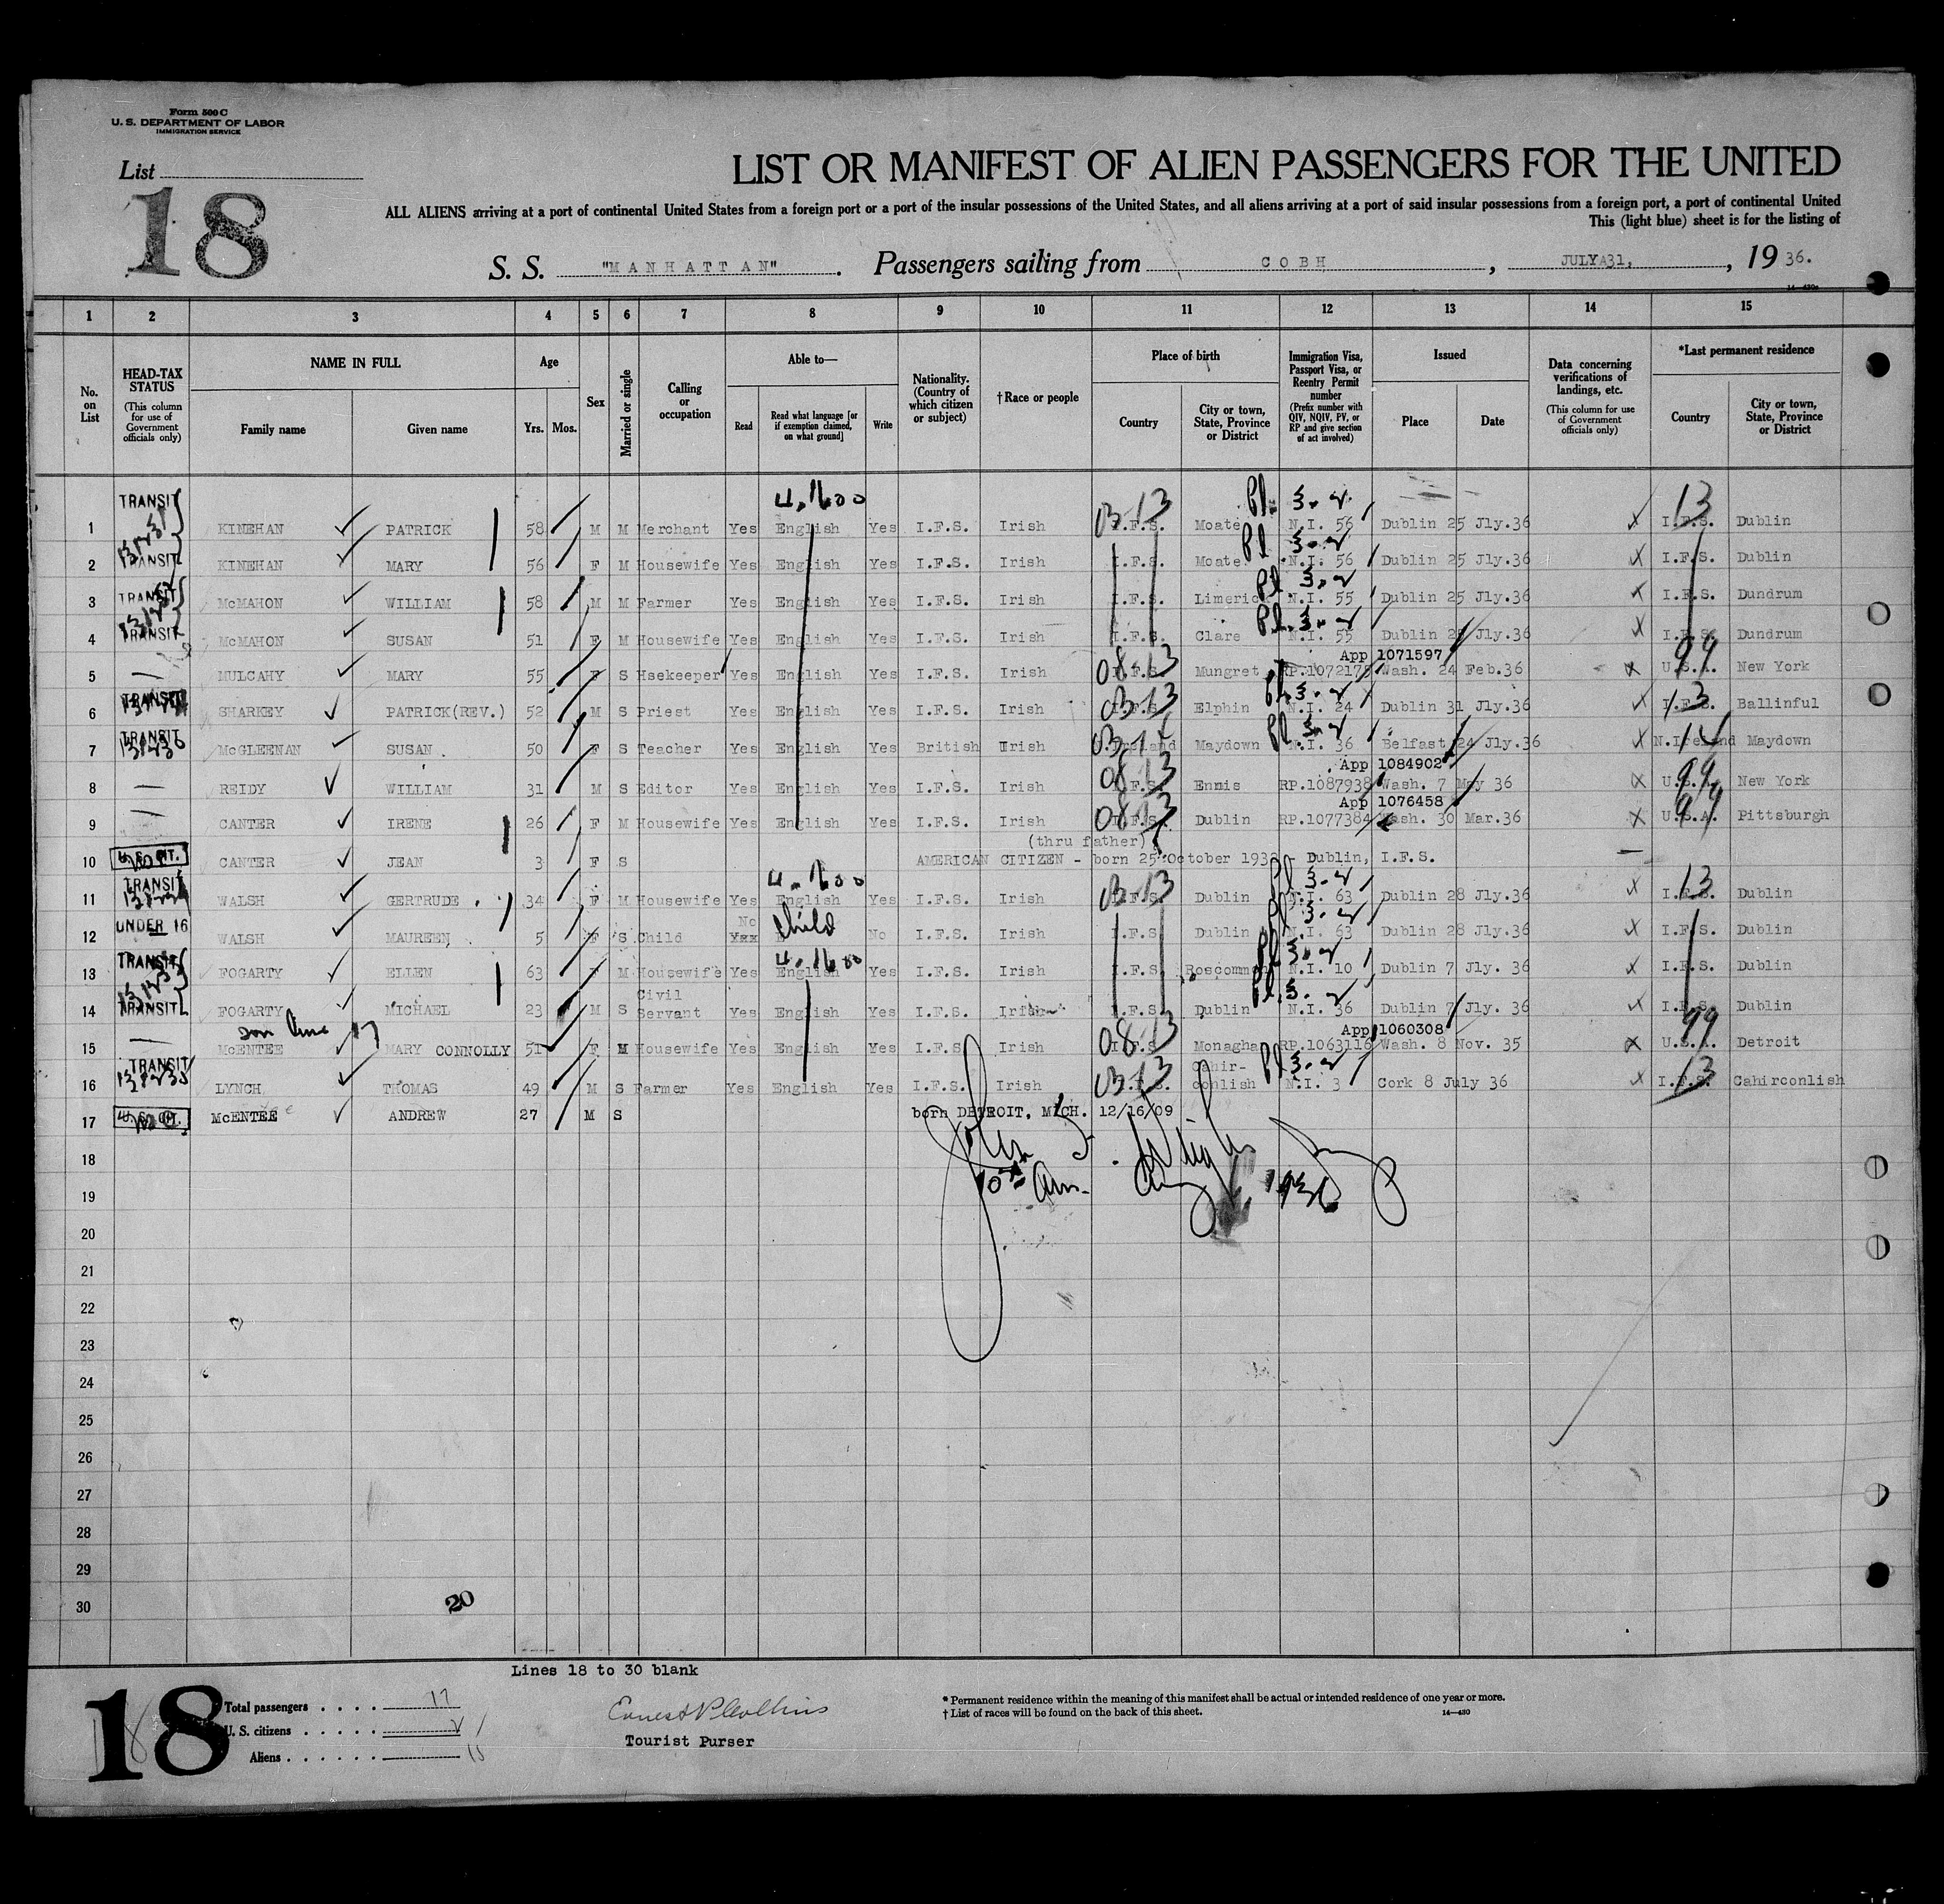 Form 500 C
U. S. DEPARTMENT OF LABOR
IMMIGRATION SERVICE
List
18
LIST OR MANIFEST OF ALIEN PASSENGERS FOR THE UNITED
ALL ALIENS arriving at a port of continental United States from a foreign port or a port of the insular possessions of the United States, and all aliens arriving at a port of said insular possessions from a foreign port, a port of continental United
This (light blue) sheet is for the listing of
S. S. "MANHATTAN". Passengers sailing from COBH, JULY 31, 1936.
1 2 3 4 5 6 7 8 9 10 11 12 13 14 15
No. on List
HEAD-TAX STATUS (This column for use of Government officials only)
NAME IN FULL Family name Given name
Age Yrs. Mos.
Sex
Married or single
Calling or occupation
Able to— Read Read what language [or if exemption claimed, on what ground] Write
Nationality. (Country of which citizen or subject)
† Race or people
Place of birth Country City or town, State, Province or District
Immigration Visa, Passport Visa, or Reentry Permit number (Prefix number with QIV, NQIV, PV, or RP and give section of act involved)
Issued Place Date
Data concerning verifications of landings, etc. (This column for use of Government officials only)
*Last permanent residence Country City or town, State, Province or District
1 TRANSIT KINEHAN PATRICK 58 M M Merchant Yes English Yes I.F.S. Irish I.F.S. Moate N.I. 56 Dublin 25 Jly.36 I.F.S. Dublin
2 TRANSIT KINEHAN MARY 56 F M Housewife Yes English Yes I.F.S. Irish I.F.S. Moate N.I. 56 Dublin 25 Jly.36 I.F.S. Dublin
3 TRANSIT McMAHON WILLIAM 58 M M Farmer Yes English Yes I.F.S. Irish I.F.S. Limerick N.I. 55 Dublin 25 Jly.36 I.F.S. Dundrum
4 TRANSIT McMAHON SUSAN 51 F M Housewife Yes English Yes I.F.S. Irish I.F.S. Clare N.I. 55 Dublin 25 Jly.36 I.F.S. Dundrum
App 1071597
5 MULCAHY MARY 55 F S Hsekeeper Yes English Yes I.F.S. Irish I.F.S. Mungret RP.1072175 Wash. 24 Feb.36 U.S.A. New York
6 TRANSIT SHARKEY PATRICK(REV.) 52 M S Priest Yes English Yes I.F.S. Irish I.F.S. Elphin N.I. 24 Dublin 31 Jly.36 I.F.S. Ballinful
7 TRANSIT McGLEENAN SUSAN 50 F S Teacher Yes English Yes British Irish Ireland Maydown N.I. 36 Belfast 24 Jly.36 N.Ireland Maydown
App 1084902
8 REIDY WILLIAM 31 M S Editor Yes English Yes I.F.S. Irish I.F.S. Ennis RP.1087938 Wash. 7 May 36 U.S.A. New York
App 1076458
9 CANTER IRENE 26 F M Housewife Yes English Yes I.F.S. Irish I.F.S. Dublin RP.1077384 Wash. 30 Mar.36 U.S.A. Pittsburgh
(thru father)
10 U. S. CIT. CANTER JEAN 3 F S AMERICAN CITIZEN - born 25 October 1932 - Dublin, I.F.S.
11 TRANSIT WALSH GERTRUDE 34 F M Housewife Yes English Yes I.F.S. Irish I.F.S. Dublin N.I. 63 Dublin 28 Jly.36 I.F.S. Dublin
12 UNDER 16 WALSH MAUREEN 5 F S Child No child No I.F.S. Irish I.F.S. Dublin N.I. 63 Dublin 28 Jly.36 I.F.S. Dublin
13 TRANSIT FOGARTY ELLEN 63 F M Housewife Yes English Yes I.F.S. Irish I.F.S. Roscommon N.I. 10 Dublin 7 Jly. 36 I.F.S. Dublin
14 TRANSIT FOGARTY MICHAEL 23 M S Civil Servant Yes English Yes I.F.S. Irish I.F.S. Dublin N.I. 36 Dublin 7 Jly. 36 I.F.S. Dublin
son line 17
App 1060308
15 McENTEE MARY CONNOLLY 51 F M Housewife Yes English Yes I.F.S. Irish Monaghan RP.1063116 Wash. 8 Nov. 35 U.S.A. Detroit
16 TRANSIT LYNCH THOMAS 49 M S Farmer Yes English Yes I.F.S. Irish I.F.S. Cahir-conlish N.I. 3 Cork 8 July 36 I.F.S. Cahirconlish
17 McENTEE ANDREW 27 M S born DETROIT, MICH. 12/16/09
18
19
20
21
22
23
24
25
26
27
28
29
30
20
Lines 18 to 30 blank
18
Total passengers . . . . 17
U. S. citizens . . . . .
Aliens . . . . . . 15
Tourist Purser
* Permanent residence within the meaning of this manifest shall be actual or intended residence of one year or more.
† List of races will be found on the back of this sheet.
14—430